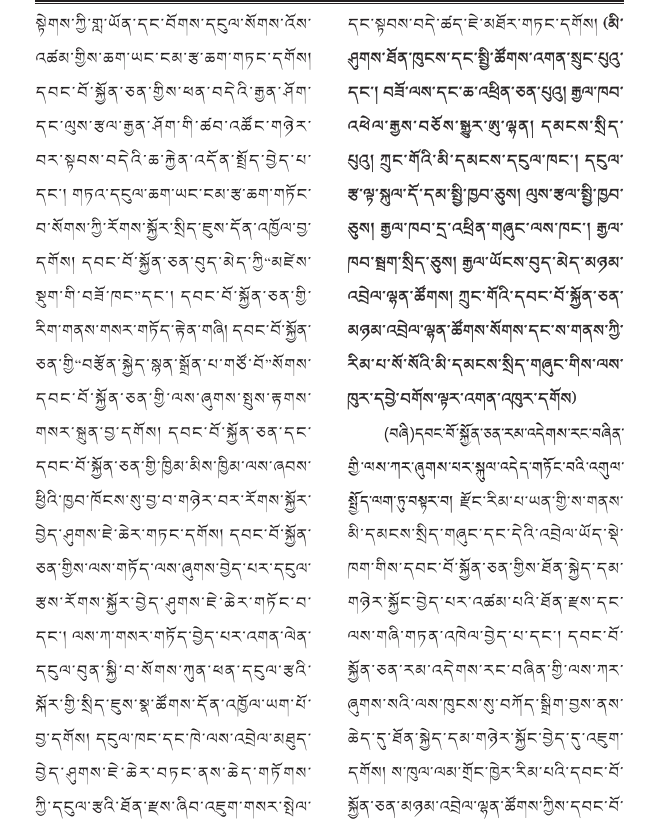 སྟེགས་ཀྱི་གླ་ཡོན་དང་བོགས་དངུལ་སོགས་འོས་
འཚམ་གྱིས་ཆག་ཡང་ངམ་རྩ་ཆག་གཏང་དགོས།
དབང་པོ་སྐྱོན་ཅན་གྱིས་ཕན་བདེའི་རྒྱན་ཤོག་
དང་ལུས་རྩལ་རྒྱན་ཤོག་གི་ཚབ་འཚོང་གཉེར་
བར་སྟབས་བདེའི་ཆ་རྐྱེན་འདོན་སྤྲོད་བྱེད་པ་
དང་། གཏའ་དངུལ་ཆག་ཡང་ངམ་རྩ་ཆག་གཏོང་
བ་སོགས་ཀྱི་རོགས་སྐྱོར་སྲིད་ཇུས་དོན་འཁྱོལ་བྱ་
དགོས། དབང་པོ་སྐྱོན་ཅན་བུད་མེད་ཀྱི“མཛེས་
སྡུག་གི་བཟོ་ཁང”དང་། དབང་པོ་སྐྱོན་ཅན་གྱི་
རིག་གནས་གསར་གཏོད་རྟེན་གཞི། དབང་པོ་སྐྱོན་
ཅན་གྱི“བརྩོན་སྐྱེད་སྟན་སྒྲོན་པ་གཙོ་བོ”སོགས་
དབང་པོ་སྐྱོན་ཅན་གྱི་ལས་ཞུགས་སྤུས་རྟགས་
གསར་སྐྲུན་བྱ་དགོས། དབང་པོ་སྐྱོན་ཅན་དང་
དབང་པོ་སྐྱོན་ཅན་གྱི་ཁྱིམ་མིས་ཁྱིམ་ལས་ཞབས་
ཕྱིའི་ཁྱབ་ཁོངས་སུ་བྱ་བ་གཉེར་བར་རོགས་སྐྱོར་
བྱེད་ཤུགས་ཇེ་ཆེར་གཏང་དགོས། དབང་པོ་སྐྱོན་
ཅན་གྱིས་ལས་གཏོད་ལས་ཞུགས་བྱེད་པར་དངུལ་
རྩས་རོགས་སྐྱོར་བྱེད་ཤུགས་ཇེ་ཆེར་གཏོང་བ་
དང་། ལས་ཀ་གསར་གཏོད་བྱེད་པར་འགན་ལེན་
དངུལ་བུན་སྐྱི་བ་སོགས་ཀུན་ཕན་དངུལ་རྩའི་
སྐོར་གྱི་སྲིད་ཇུས་སྣ་ཚོགས་དོན་འཁྱོལ་ཡག་པོ་
བྱ་དགོས། དངུལ་ཁང་དང་ཁེ་ལས་འབྲེལ་མཐུད་
བྱེད་ཤུགས་ཇེ་ཆེར་བཏང་ནས་ཆེད་གཏོགས་
ཀྱི་དངུལ་རྩའི་ཐོན་རྫས་ཞིབ་འཇུག་གསར་སྤེལ་
དང་སྟབས་བདེ་ཚད་ཇེ་མཐོར་གཏང་དགོས། (མི་
ཤུགས་ཐོན་ཁུངས་དང་སྤྱི་ཚོགས་འགན་སྲུང་པུའུ་
དང་། བཟོ་ལས་དང་ཆ་འཕྲིན་ཅན་པུའུ། རྒྱལ་ཁབ་
འཕེལ་རྒྱས་བཅོས་སྒྱུར་ཨུ་ལྷན། དམངས་སྲིད་
པུའུ། ཀྲུང་གོའི་མི་དམངས་དངུལ་ཁང་། དངུལ་
རྩ་ལྟ་སྐུལ་དོ་དམ་སྤྱི་ཁྱབ་ཅུས། ལུས་རྩལ་སྤྱི་ཁྱབ་
ཅུས། རྒྱལ་ཁབ་དྲ་འཕྲིན་གཞུང་ལས་ཁང་། རྒྱལ་
ཁབ་སྦྲག་སྲིད་ཅུས། རྒྱལ་ཡོངས་བུད་མེད་མཉམ་
འབྲེལ་ལྷན་ཚོགས། ཀྲུང་གོའི་དབང་པོ་སྐྱོན་ཅན་
མཉམ་འབྲེལ་ལྷན་ཚོགས་སོགས་དང་ས་གནས་ཀྱི་
རིམ་པ་སོ་སོའི་མི་དམངས་སྲིད་གཞུང་གིས་ལས་
ཁུར་དབྱེ་བགོས་ལྟར་འགན་འཁུར་དགོས)
(བཞི)དབང་པོ་སྐྱོན་ཅན་རམ་འདེགས་རང་བཞིན་
གྱི་ལས་ཀར་ཞུགས་པར་སྐུལ་འདེད་གཏོང་བའི་འགུལ་
སྤྱོད་ལག་ཏུ་བསྟར་བ། རྫོང་རིམ་པ་ཡན་གྱི་ས་གནས་
མི་དམངས་སྲིད་གཞུང་དང་དེའི་འབྲེལ་ཡོད་སྡེ་
ཁག་གིས་དབང་པོ་སྐྱོན་ཅན་གྱིས་ཐོན་སྐྱེད་དམ་
གཉེར་སྐྱོང་བྱེད་པར་འཚམ་པའི་ཐོན་རྫས་དང་
ལས་གཞི་གཏན་འཁེལ་བྱེད་པ་དང་། དབང་པོ་
སྐྱོན་ཅན་རམ་འདེགས་རང་བཞིན་གྱི་ལས་ཀར་
ཞུགས་སའི་ལས་ཁུངས་སུ་བཀོད་སྒྲིག་བྱས་ནས་
ཆེད་དུ་ཐོན་སྐྱེད་དམ་གཉེར་སྐྱོང་བྱེད་དུ་འཇུག་
དགོས། ས་ཁུལ་ལམ་གྲོང་ཁྱེར་རིམ་པའི་དབང་པོ་
སྐྱོན་ཅན་མཉམ་འབྲེལ་ལྷན་ཚོགས་ཀྱིས་དབང་པོ་